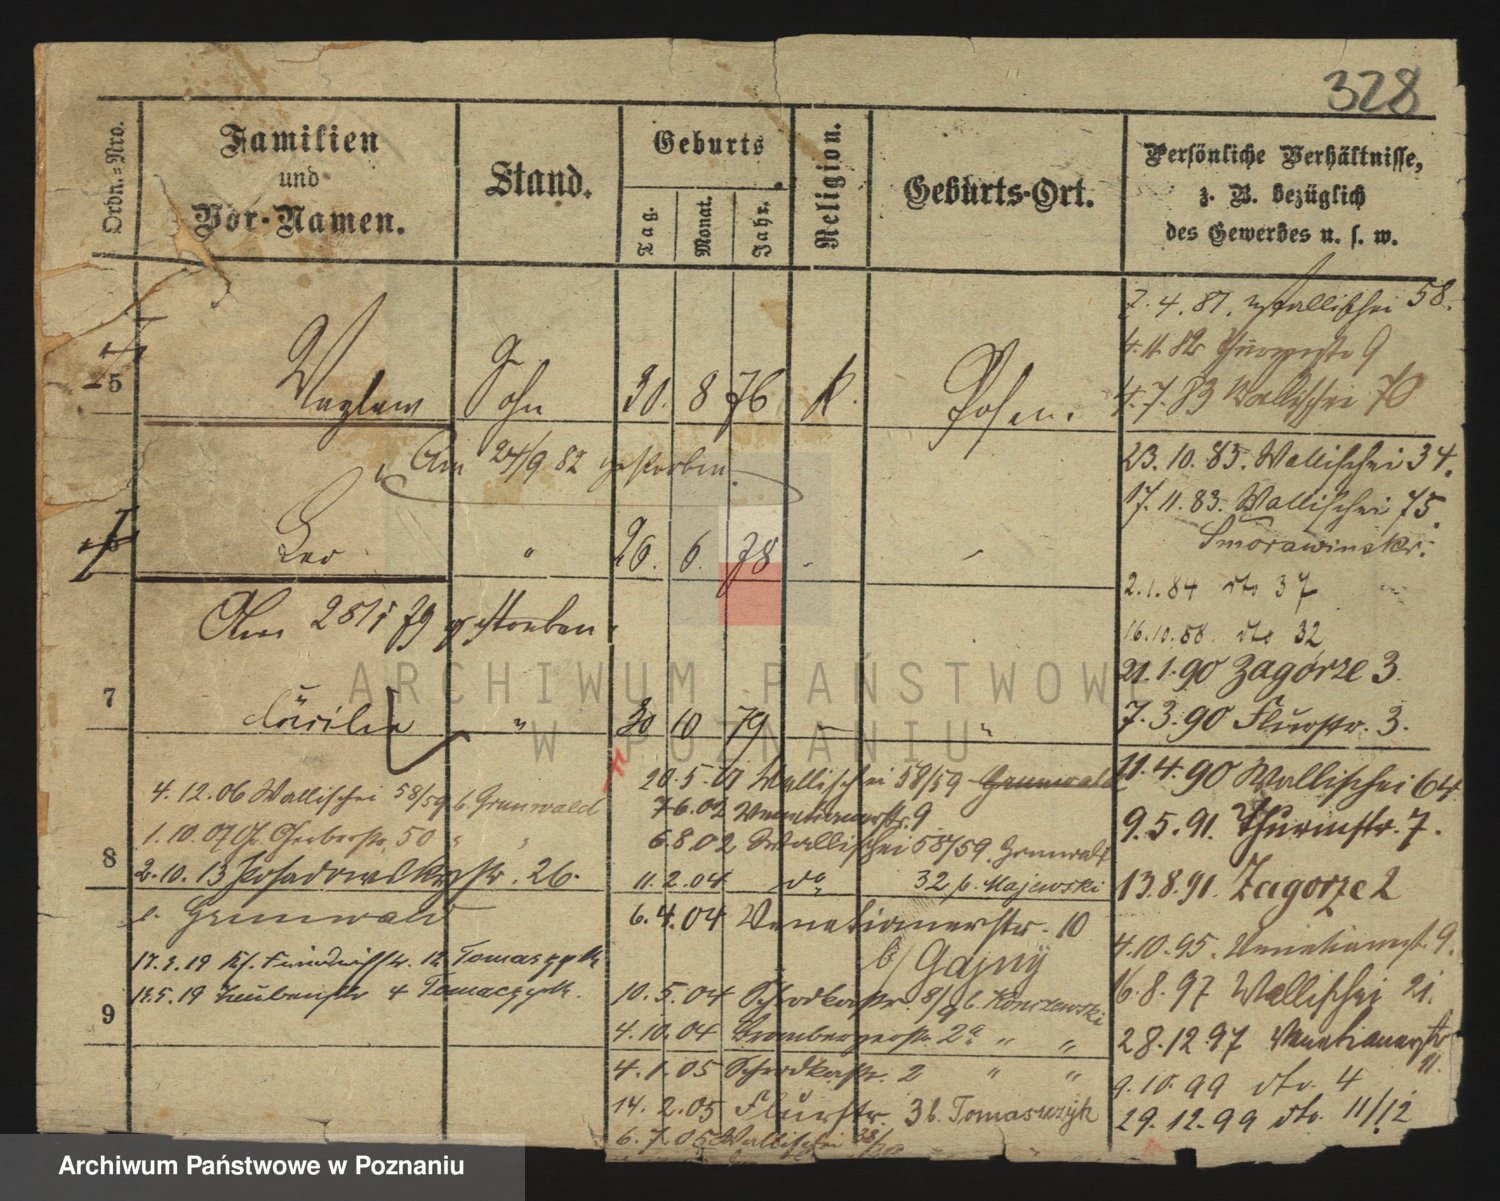 328
Ordn.=Nro.
Familien
und
Vor-Namen.
Stand.
Geburts
Tag.
Monat.
Jahr.
Religion.
Geburts-Ort.
Persönliche Verhältnisse,
z. B. bezüglich
des Gewerbes u. s. w.
5 Wazlaw Sohn 30. 8 76 k. Posen.
Am 24/9 82 gestorben.
6 Leo " 26. 6. 78
Am 25/1 79 gestorben.
7 Cäcilie " 30 10 79 "
4.12.06 Wallischei 58/59 b. Grunwald
1.10.07 Gr. Gerberstr. 50 " "
8
2.10.13 Posadowskystr. 26.
b. Grunwald
17.3.19 Tomaszyk
12.5.19 4 Tomaczyk.
9
20.5.01 Wallischei 58/59 Grunwald
7.6.02 Venetianerstr. 9
6.8.02 Wallischei 58/59. Grunwald
11.2.04 do 32 b. Majewski
6.4.04 Venetianerstr. 10
b/ Gajny
10.5.04 Schrodkastr. 8/9 b. Konczewski
4.10.04 Brombergerstr. 2a " "
4.1.05 Schrodkastr. 2 " "
14.2.05 Flurstr. 3 b. Tomaszyk
6.7.05 Wallischei
2.4.81. Wallischei 58.
4.11.82 9
4.7.83 Wallischei 70
23.10.83. Wallischei 34.
17.11.83. Wallischei 75.
Smorawinski.
2.1.84 dto 37
16.10.88. dto 32
21.1.90 Zagórze 3.
7.3.90 Flurstr. 3.
11.4.90 Wallischei 64
9.5.91. Thurmstr. 7.
13.8.91. Zagorze 2
4.10.95. Venetianerst. 9.
16.8.97 Wallischei 21.
28.12.97 Venetianerstr
11.
9.10.99 dto. 4
29.12.99 dto. 11/12
ARCHIWUM PAŃSTWOWE
W POZNANIU
Archiwum Państwowe w Poznaniu